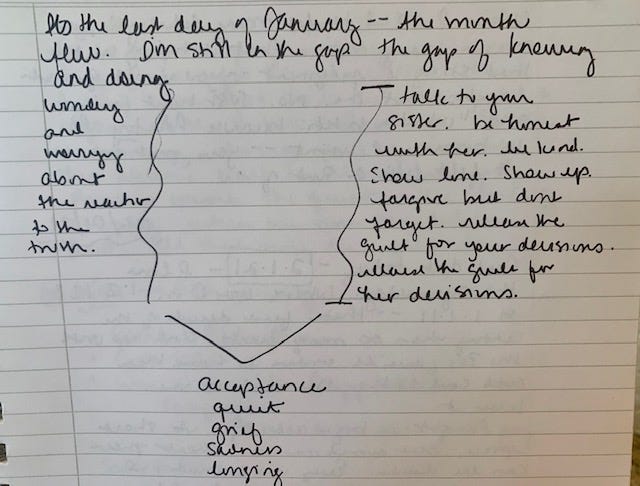 Its the last day of January -- the month
flew. I'm still in the gap the gap of knowing
and doing
wonder
and
worrying
about
the reaction
to the
truth.
talk to your
sister. be honest
with her. be kind.
Show love. Show up.
forgive but dont
forget. release the
guilt for your decisions.
release the guilt for
her decisions.
acceptance
quiet
grief
sadness
longing